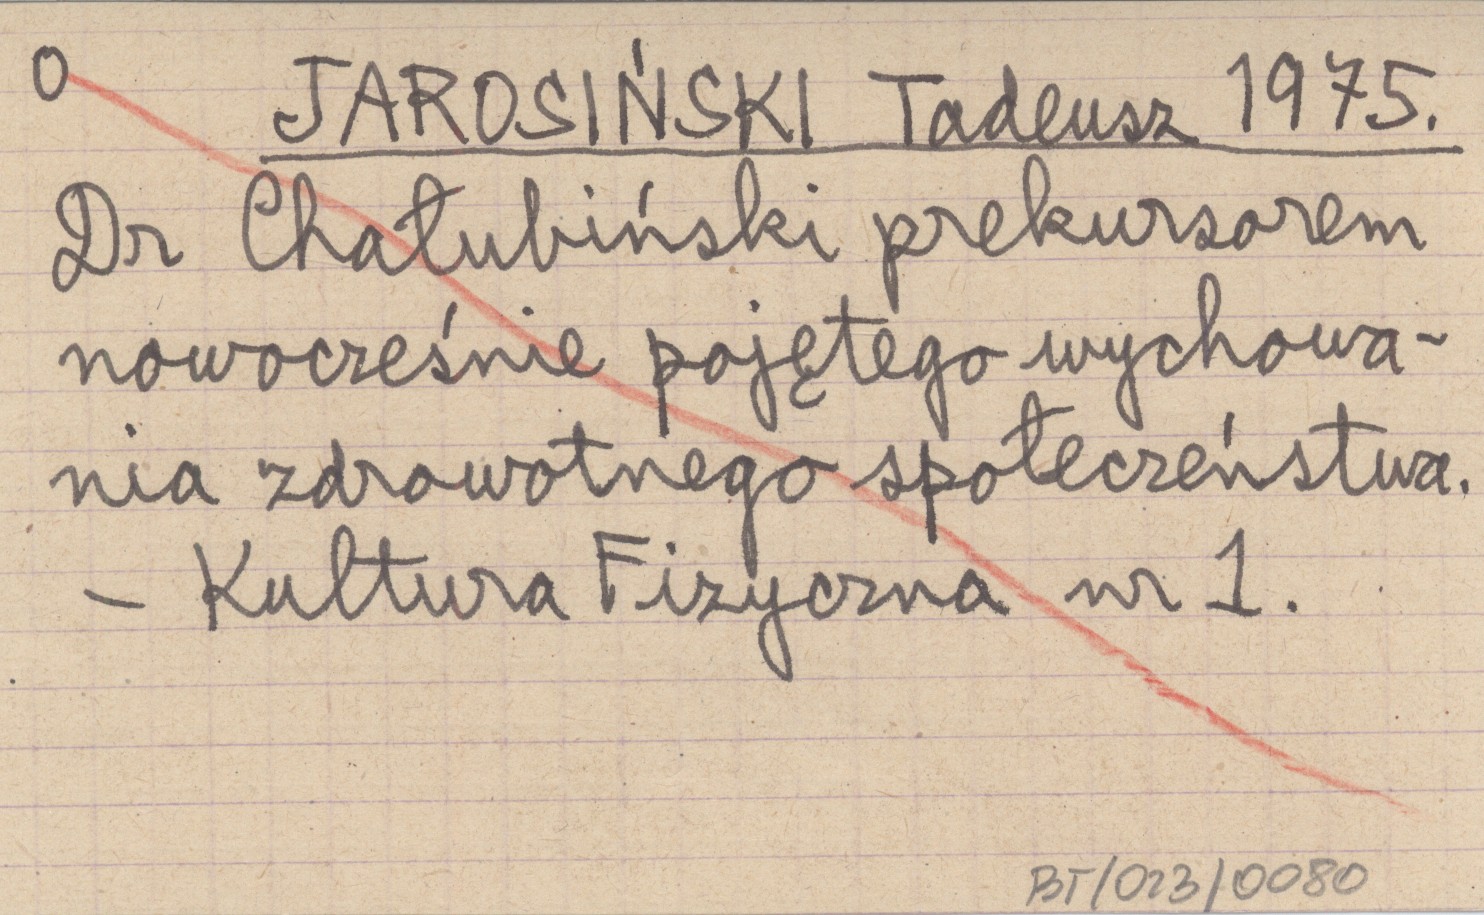 O JAROSIŃSKI Tadeusz 1975.
Dr Chałubiński prekursorem
nowocześnie pojętego wychowa-
nia zdrowotnego społeczeństwa.
- Kultura Fizyczna nr 1.
BT/023/0080